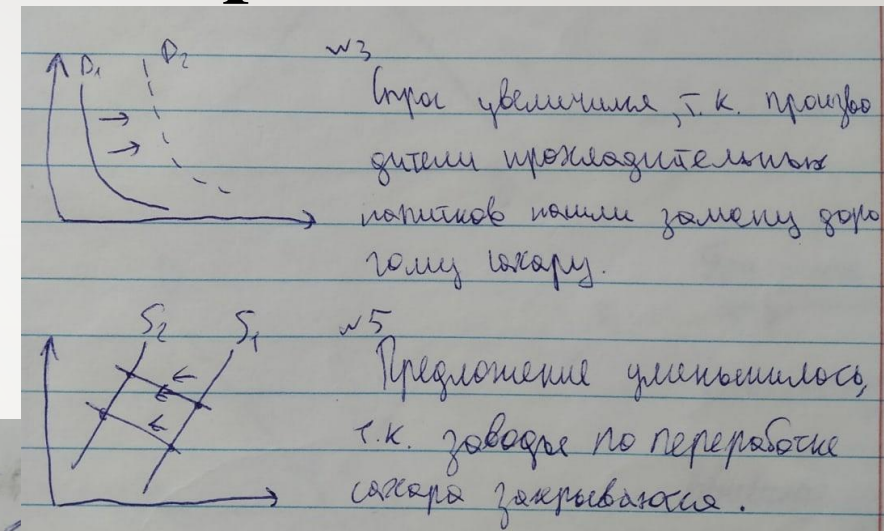 D₁ D₂ №3
Спрос увеличился, т.к. произво
дители прохладительных
напитков нашли замену доро
гому сахару.
S₂ S₁ №5
Предложение уменьшилось,
т.к. заводы по переработке
сахара закрываются.